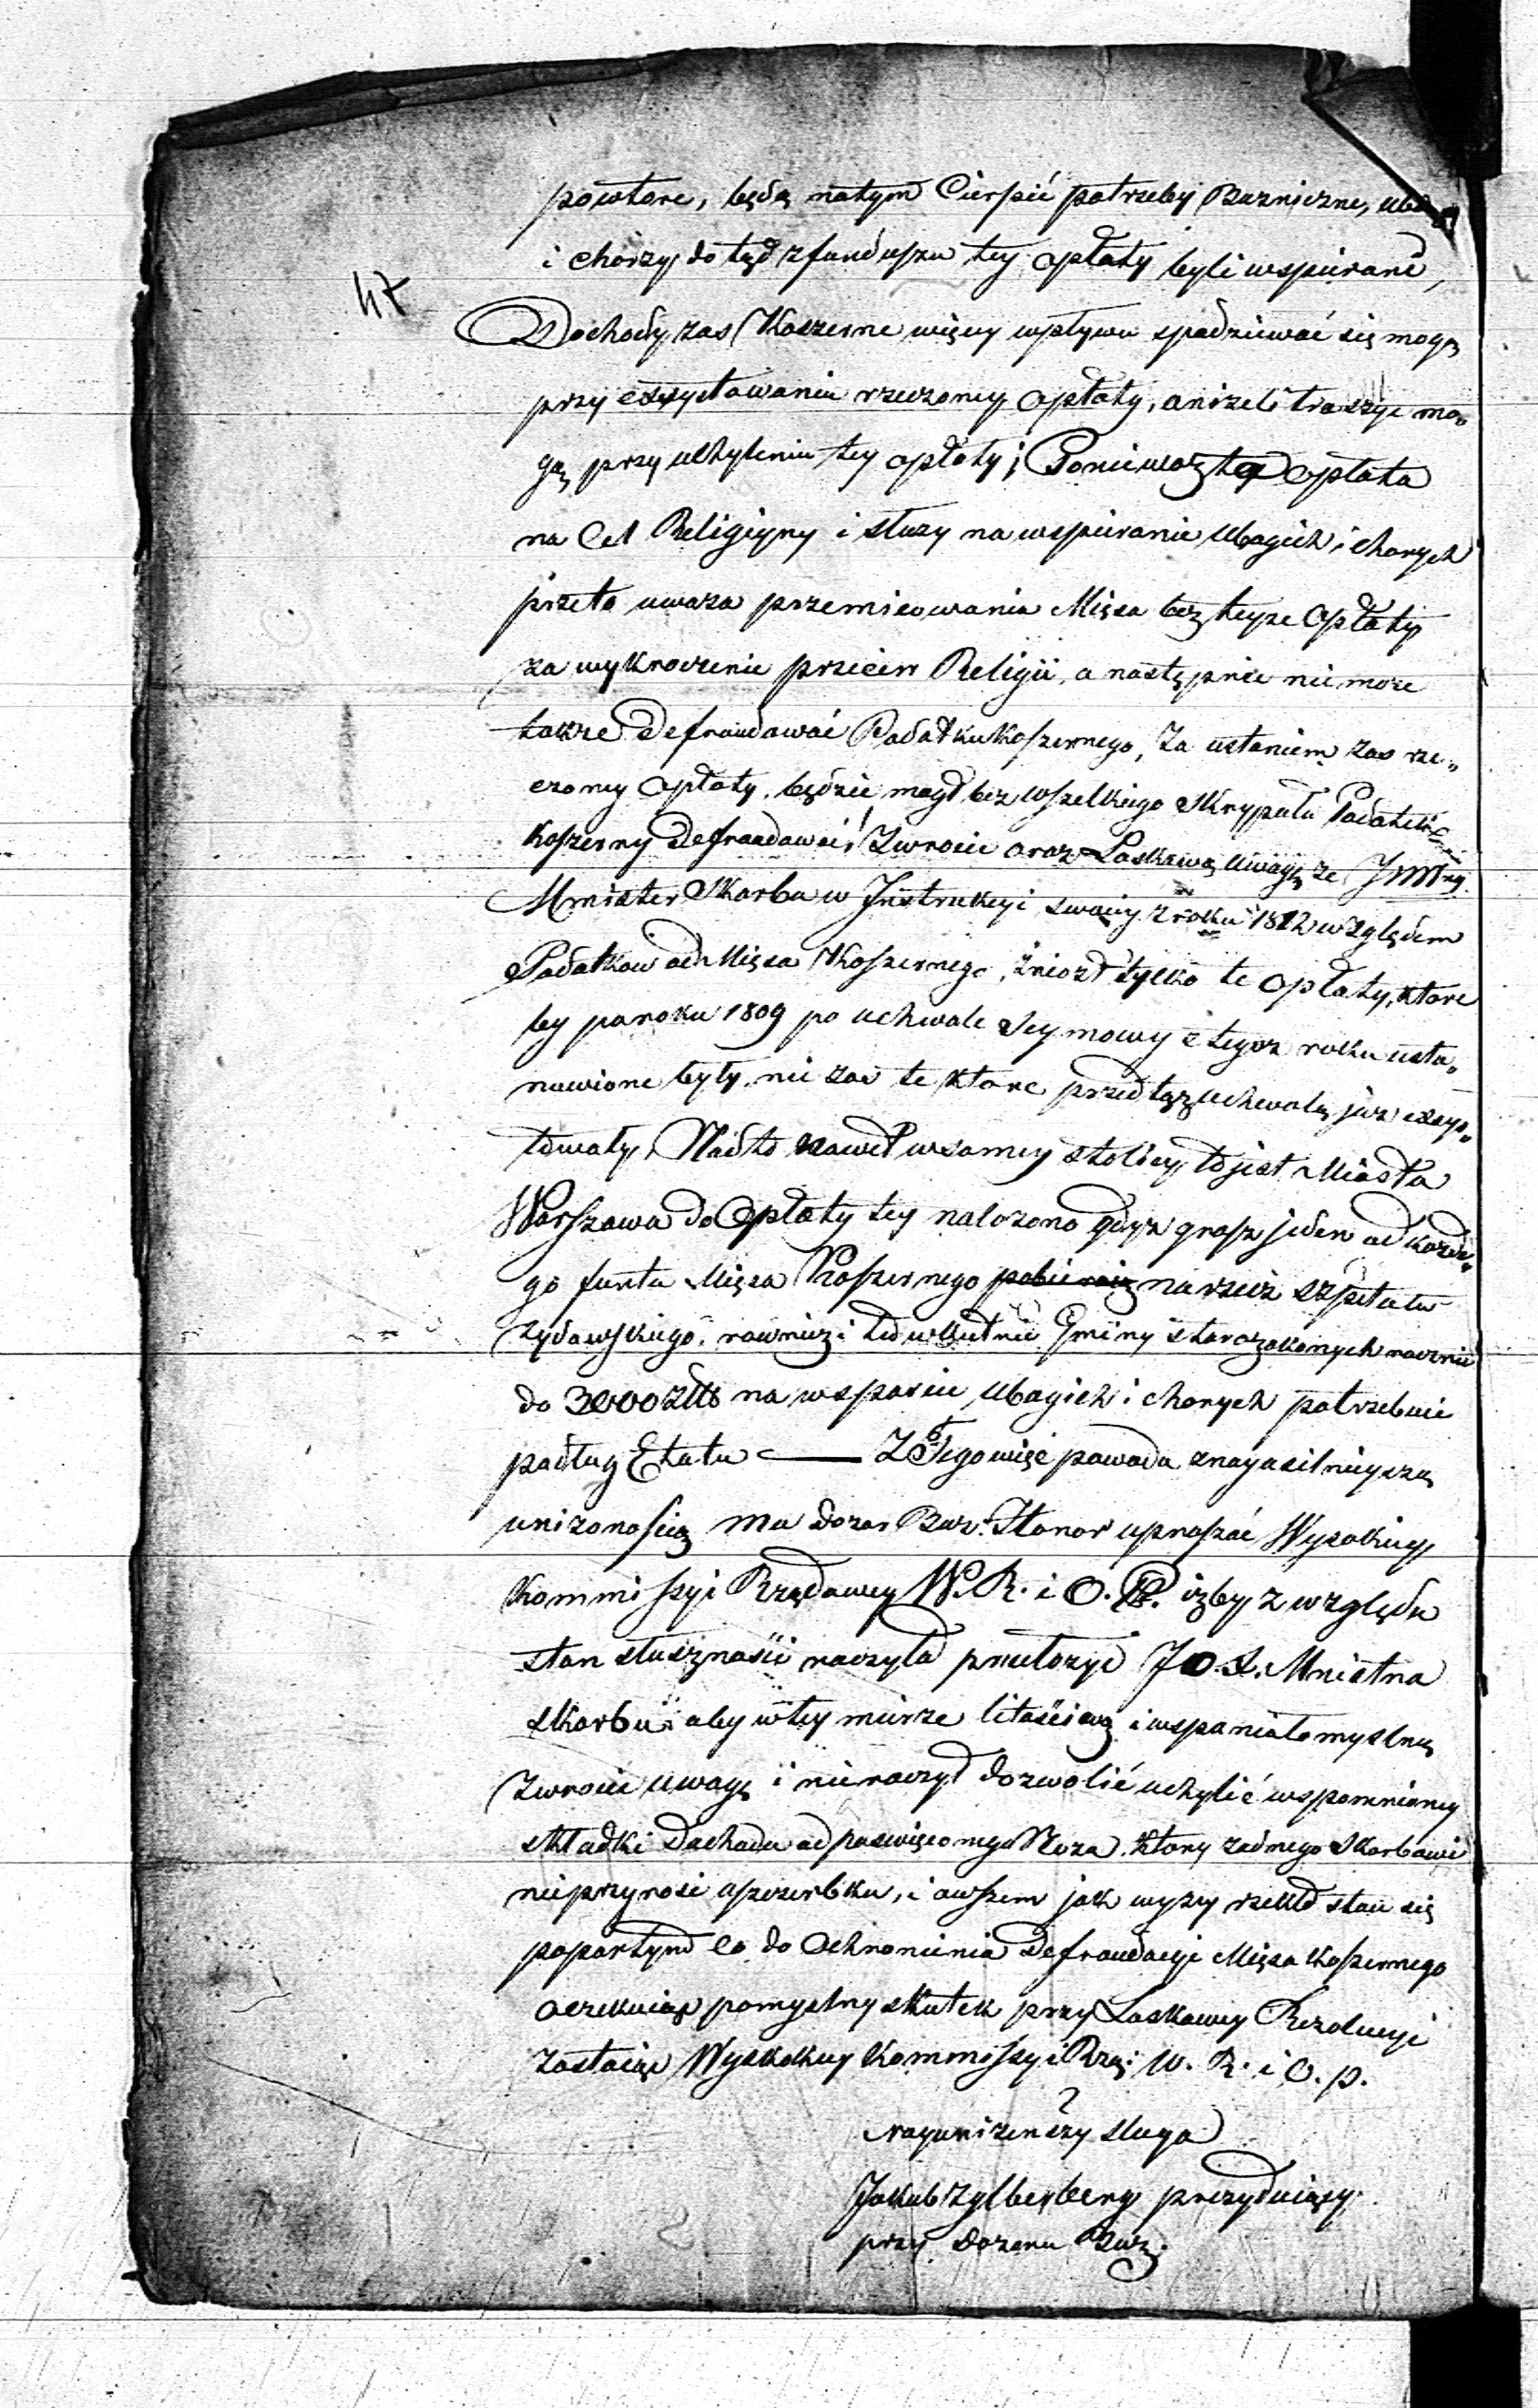 powtore, będą natym Cierpić potrzeby Buzniczne,
i chorzy do tąd z funduszu tey opłaty byli wspierane,
47
Dochody zas Koszerne więcy wpływu spodziewać się mogą
przy exzystowaniu rzeczoney opłaty, anizeli traszyc mo„
gą, przy uchyleniu tey opłaty; Poniewoz ta opłata
na Cel Religiyny i słuzy na wspieranie Ubogich i chorych
przeto uwaza przemicowania Mięsa bez teyze Opłaty
za wykroczenie przeciw Religii, a następnie nie moze
takze Defraudować Podatku Koszernego, Za ustaniem zas rze„
czoney Opłaty, będzie mogł bez wszelkiego Skrypułu Podatek
Koszerny Defraudować! Zwrocic oraz Łaskawą Uwagę ze
Mnister Skarbu w Jnstrukcyi swoiey z roku 1812 względem
Podatkow od Mięsa Koszernego, zniozł tylko te opłaty, ktore
by po roku 1809 po uchwale Seymowy z tegoz roku usta„
nowione były, nie zas te ktore przed tąz uchwałą juz exzys„
towały, Nadto nawet w samey stolicy to jest Miasta
Warszawa do Opłaty tey nalozono gdyz grosz jeden od kozde„
go funta Mięsa Koszernego pobieraią na rzecz szpitalu
zydowskiego, rowniez i Gminy starozakonych rocznie
do 3000 złł na wsparcie Ubogich i chorych potrzebuie
podług Etatu — Z Tego więc powodu z nayusilnieyszą
unizonoscią ma Dozor Buz: Honor upraszać Wysokiey
Kommissyi Rządowey W. R. i O. P. izby z względu
stan słusznosci raczyła przełozyc J O X. Mnistra
Skarbu aby w tey mierze litosciwą i wspaniałomyslną
Zwrocic uwagę i nie raczył dozwolić uchylić wspomnioney
składki Dochodu od poswięconego Noza, ktory zadnego Skarbowi
nie przynosi uszczerbku, i owszem jak wyzy rzekł staie się
popartym co do Ochronienia Defraudacyi Mięsa koszernego
oczekuiąc pomyslny skutek przy Łaskawey Rezolucyi
zostaiąc Wysokiey Kommissyi Rzą: W. R. i O. P.
nayunizenszy sługa
Jakub Zylberberg prezyduiący
przy Dozoru Buz: